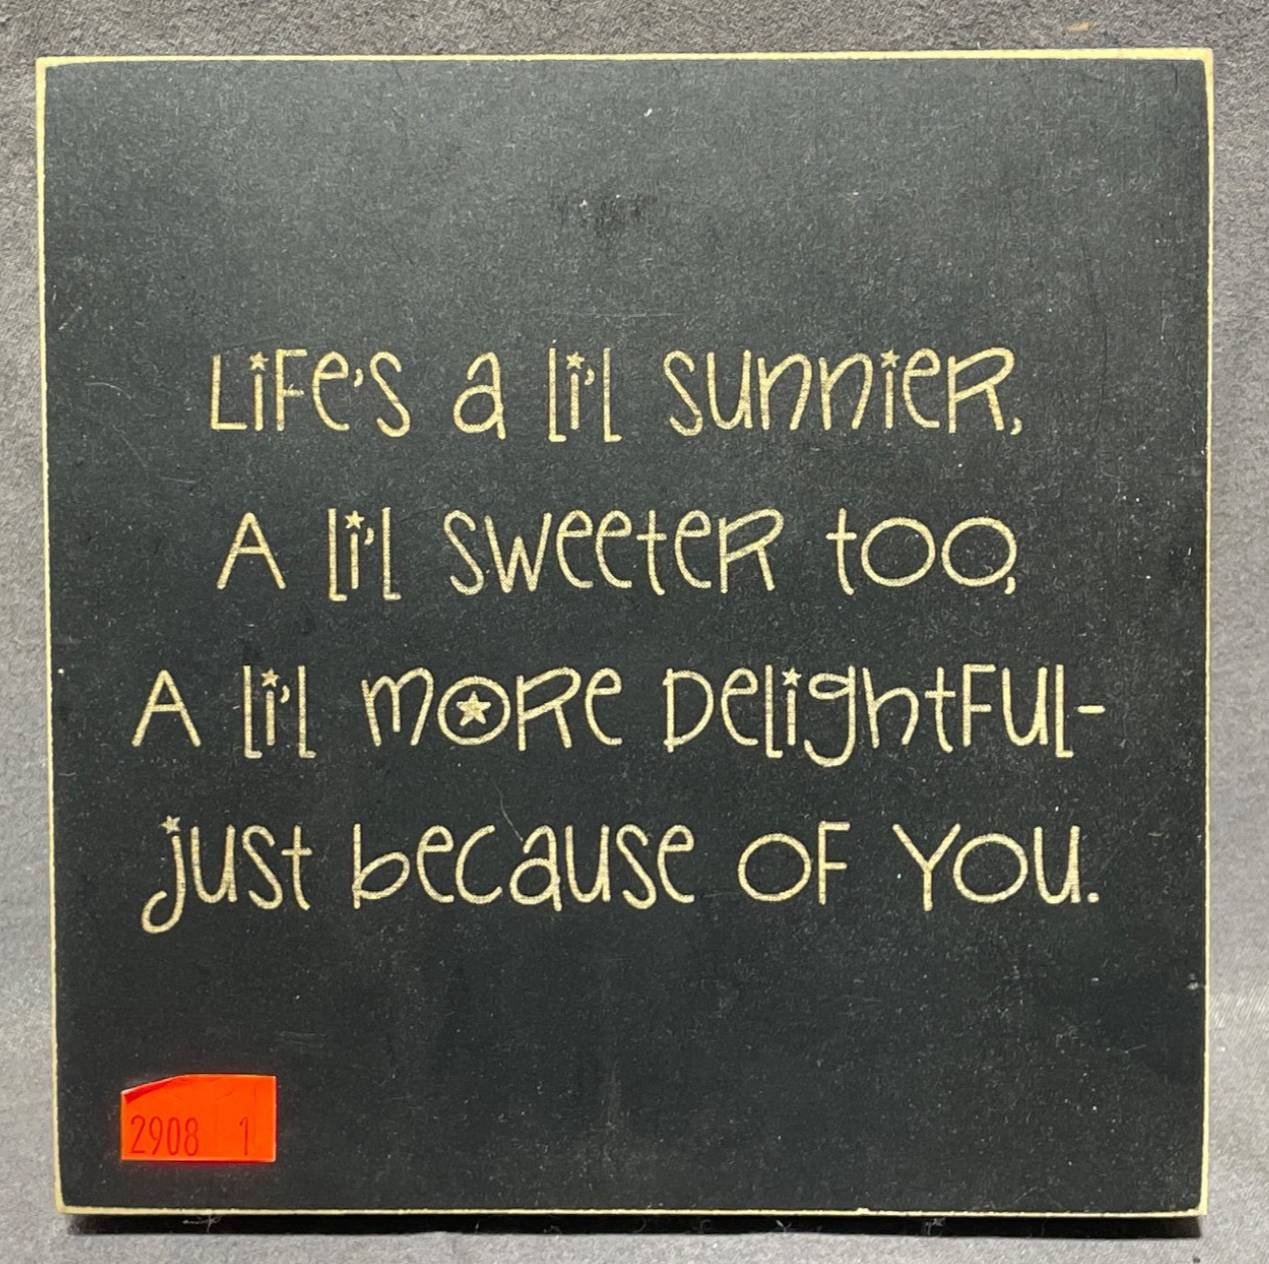 Life's a li'l sunnier,
A li'l sweeter too,
A li'l more Delightful-
just because of You.
2908 1